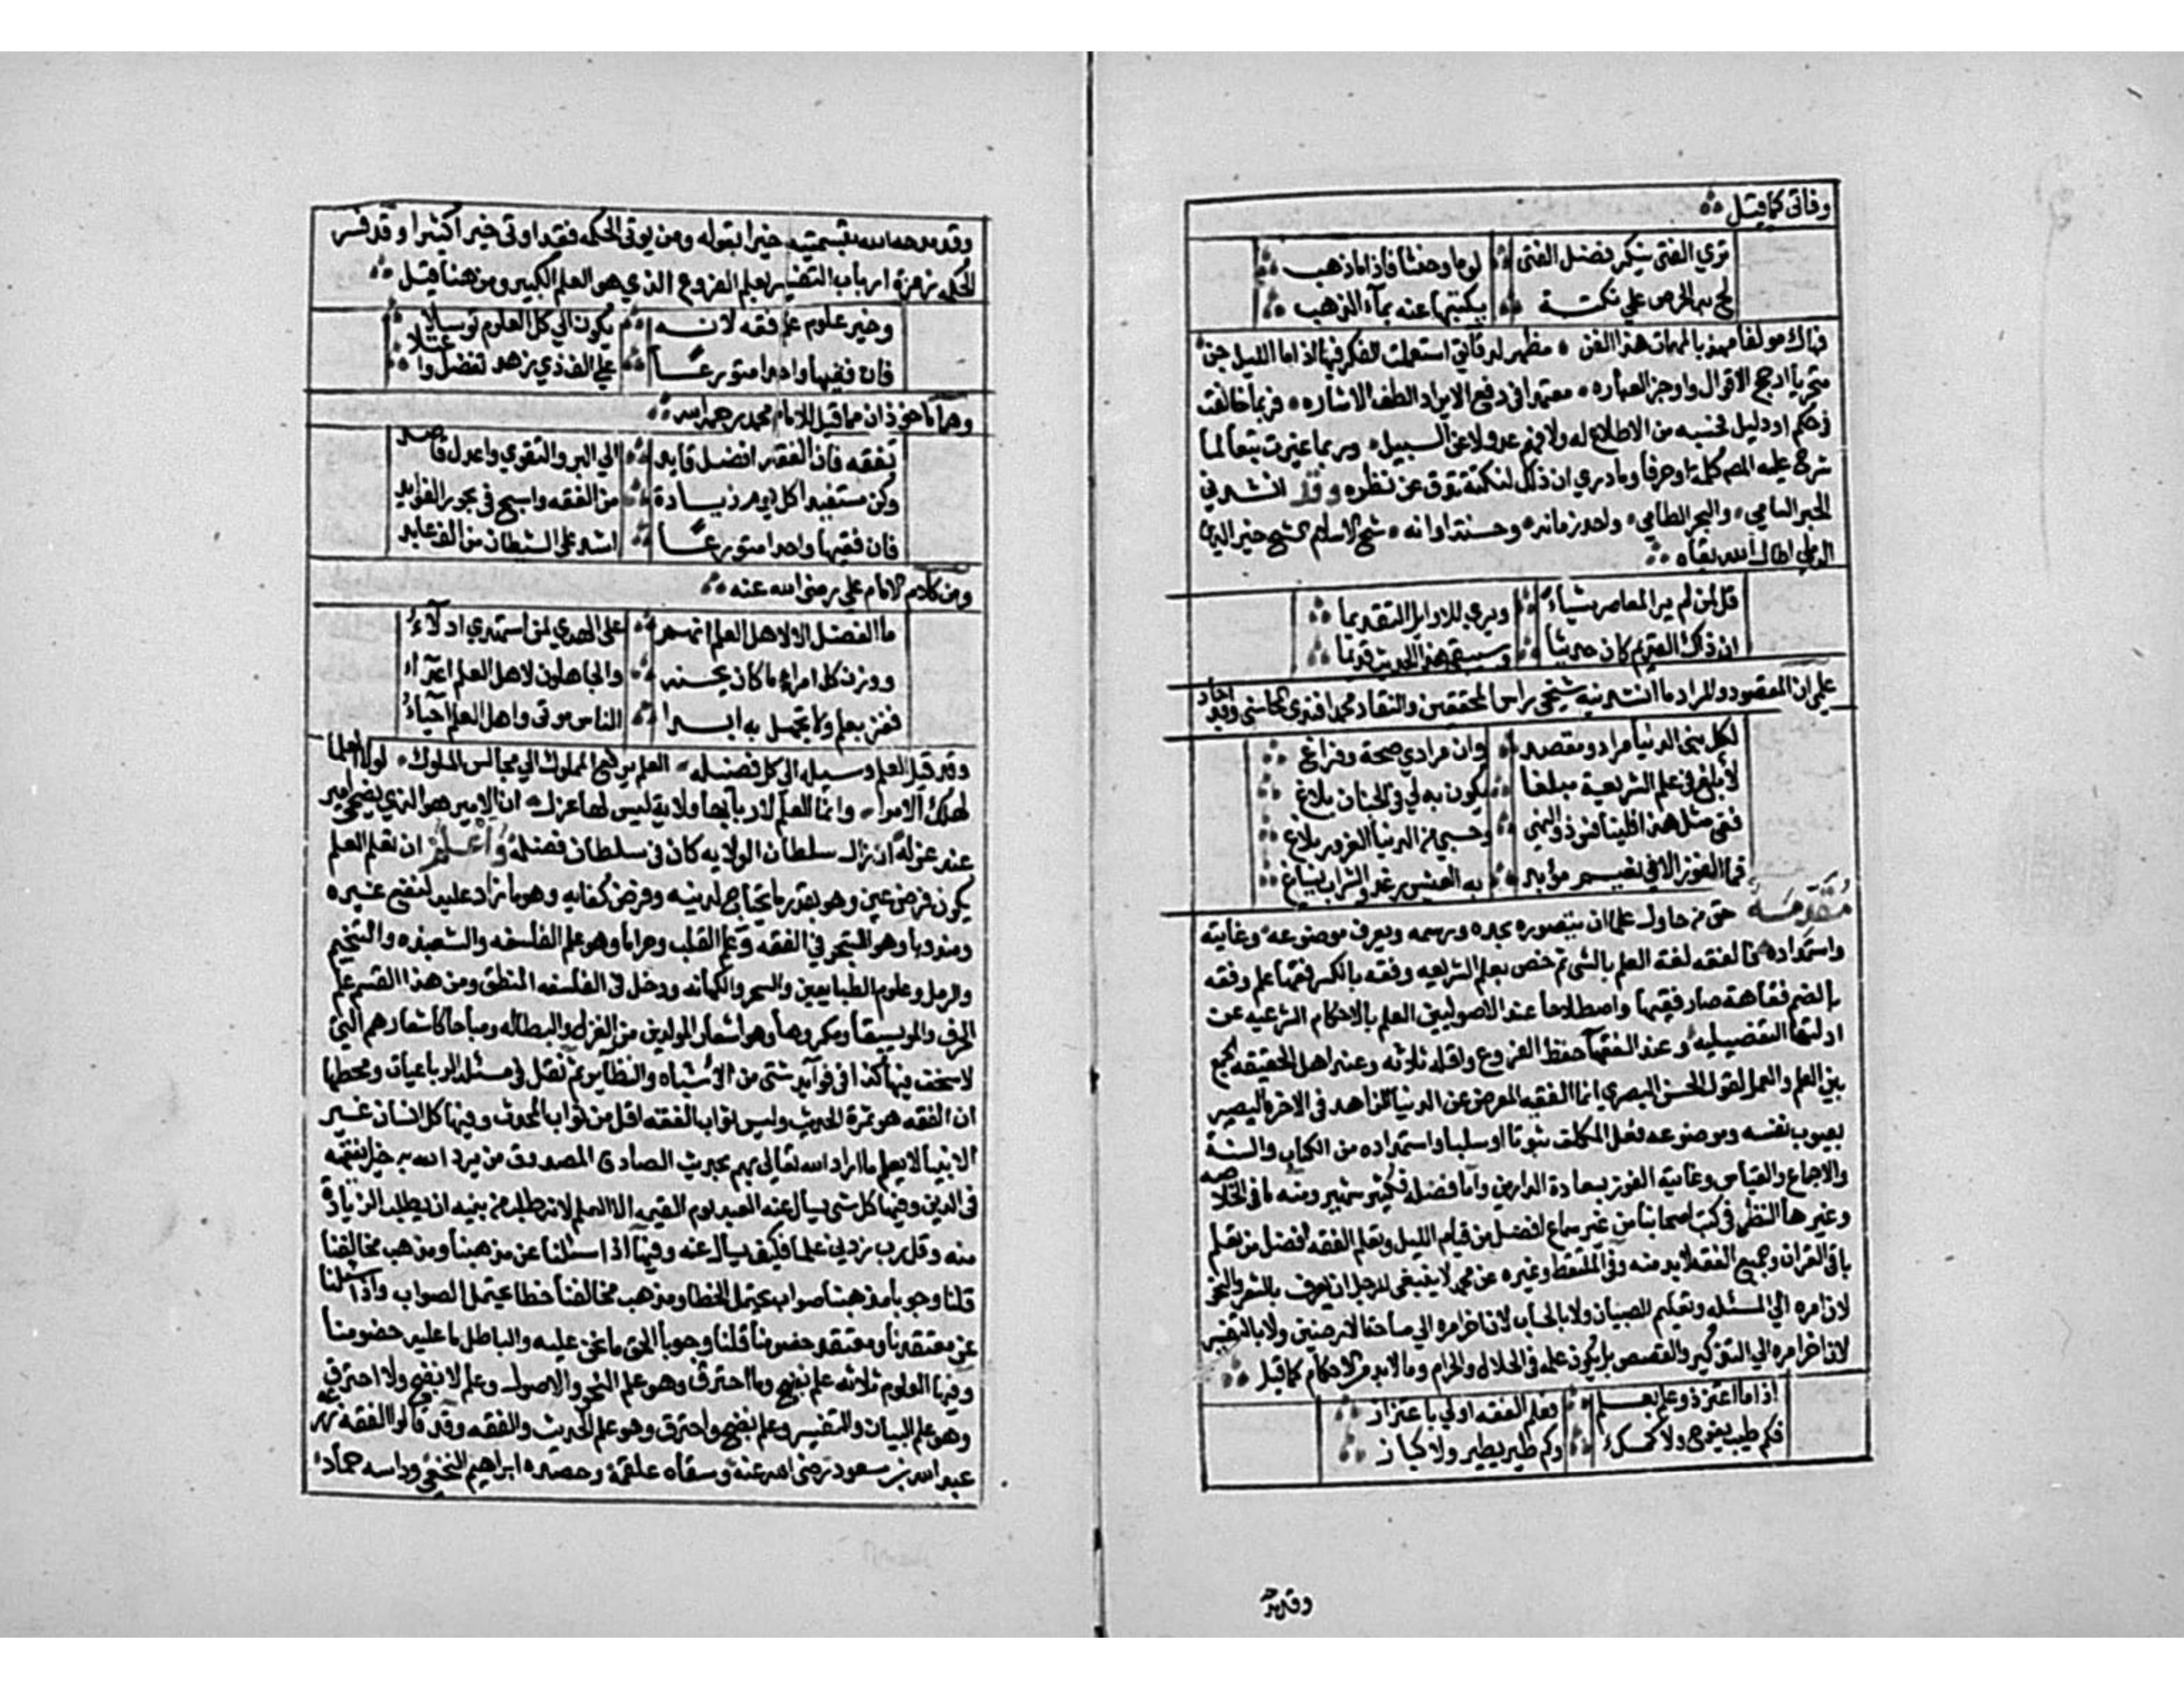 وفاتى كما قيل
ترى الفتى ينكر فضل الفتى لوما وخبثا فاذا ما ذهب
لج به الحرص على نكتة يكتبها عنه بماء الذهب
فهاك مولفا مهذبا لمهمات هذا الفن مظهر لدقائق استعملت الفكر فيها اذا ما الليل جن
متحريا ارجح الاقوال واوجز العباره معتمدا فى دفع الايراد الطف الاشاره فربما خالفت
فى حكم او دليل فحسبه من لا اطلاع له ولا فهم عدولا عن السبيل وربما غيرت تبعا لما
شرح عليه المص كلمة او حرفا وما درى ان ذلك لنكتة تدق عن نظره وقد انشدنى
الحبر السامى والبحر الطامى واحد زمانه وحسنة اوانه شيخ الاسلام الشيخ خير الدين
الرملى اطال الله بقاه
قل لمن لم ير المعاصر شياء ويرى للاوايل التقديما
ان ذاك القديم كان حديثا وسيبقى هذا الحديث قديما
على ان المقصود والمراد ما انشدنيه شيخى راس المحققين والنقاد محمد افندى المحاسنى وقد اجاد
لكل بنى الدنيا مراد ومقصد وان مرادى صحة وفراغ
لابلغ فى علم الشريعة مبلغا يكون به لى فى الجنان بلاغ
ففى مثل هذا فلينافس ذو النهى وحسبى من الدنيا الغرور بلاغ
فما الفوز الا فى نعيم مؤبد به العيش رغد والشراب يساغ
مقدمة حق من حاول علما ان يتصوره بحده ورسمه ويعرف موضوعه وغايته
واستمداده فالفقه لغة العلم بالشى ثم خص بعلم الشريعه وفقه بالكسر فقها علم وفقه
بالضم فقاهة صار فقيها واصطلاحا عند الاصوليين العلم بالاحكام الشرعيه عن
ادلتها التفصيليه وعند الفقهاء حفظ الفروع واقله ثلاثه وعند اهل الحقيقه الجمع
بين العلم والعمل لقول الحسن البصرى انما الفقيه المعرض عن الدنيا الزاهد فى الاخره البصير
بعيوب نفسه وموضوعه فعل المكلف ثبوتا او سلبا واستمداده من الكتاب والسنة
والاجماع والقياس وغايته الفوز بسعادة الدارين واما فضله فكثير شهير ومنه ما فى الخلاصه
وغيرها النظر فى كتب اصحابنا من غير سماع افضل من قيام الليل وتعلم الفقه افضل من تعلم
باقى القران وجميع الفقه لابد منه وفى الملتقط وغيره عن محمد لا ينبغى للرجل ان يعرف بالشعر والنحو
لان امره الى المسئله وتعليم الصبيان ولا بالحساب لان اخر امره الى مساحة الارضين ولا بالتفسير
لان اخر امره الى التذكير والقصص بل يكون علمه فى الحلال والحرام وما لابد من الاحكام كما قيل
اذا ما اعتز ذو علم بعلم فعلم الفقه اولى باعتزاز
فكم طيب يفوح ولا كمسك وكم طير يطير ولا كباز
وقد مدحه
وقد مدحه الله بتسميته خيرا بقوله ومن يوتى الحكمه فقد اوتى خيرا كثيرا وقد فسر
الحكمه زمرة ارباب التفسير بعلم الفروع الذى هو العلم الكبير ومن هنا قيل
وخير علوم علم فقه لانه يكون الى كل العلوم توسلا
فان فقيها واحدا متورعا على الف ذى زهد تفضل واعتلا
وهما ماخوذان مما قيل للامام محمد رحمه الله
تفقه فان الفقه افضل قايد الى البر والتقوى واعدل قاصد
وكن مستفيدا كل يوم زيادة من الفقه واسبح فى بحور الفوايد
فان فقيها واحدا متورعا اشد على الشيطان من الف عابد
ومن كلام الامام على رضى الله عنه
ما الفضل الا لاهل العلم انهم على الهدى لمن استهدى ادلاء
ووزن كل امرء ما كان يحسنه والجاهلون لاهل العلم اعداء
ففز بعلم ولا تجهل به ابدا الناس موتى واهل العلم احياء
وقد قيل العلم وسيله الى كل فضيله العلم يرفع المملوك الى مجالس الملوك لولا العلما
لهلك الامرا وانما العلم لاربابها ولاية ليس لها عزل ان الامير هو الذى يضحى امير
عند عزله ان زال سلطان الولايه كان فى سلطان فضله واعلم ان تعلم العلم
يكون فرض عين وهو بقدر ما يحتاج لدينه وفرض كفايه وهو ما زاد عليه لنفع غيره
ومندوبا وهو التبحر فى الفقه وعلم القلب وحراما وهو علم الفلسفه والشعبذه والتنجيم
والرمل وعلوم الطبايعيين والسحر والكهانه ودخل فى الفلسفه المنطق ومن هذا القسم علم
الحرف والموسيقا ومكروها وهو اشعار المولدين من الغزل والبطاله ومباحا كاشعارهم التى
لا سخف فيها كذا فى فوآيد شتى من الاشباه والنظآير ثم نقل فى مسئلة الرباعيات ومحطها
ان الفقه هو ثمرة الحديث وليس ثواب الفقه اقل من ثواب المحدث وفيها كل انسان غير
الانبيا لا يعلم ما اراد الله تعالى بهم بحديث الصادق المصدوق من يرد الله به خيرا يفقهه
فى الدين وفيها كل شى يسال عنه العبد يوم القيمه الا العلم لانه طلب من نبيه ان يطلب الزيادة
منه وقل رب زدنى علما فكيف يسال عنه وفيها اذا سئلنا عن مذهبنا ومذهب مخالفنا
قلنا وجوبا مذهبنا صواب يحتمل الخطا ومذهب مخالفنا خطا يحتمل الصواب واذا سئلنا
عن معتقدنا ومعتقد خصومنا قلنا وجوبا الحق ما نحن عليه والباطل ما عليه خصومنا
وفيها العلوم ثلاثه علم نضج وما احترق وهو علم النحو والاصول وعلم لا نضج ولا احترق
وهو علم البيان والتفسير وعلم نضج واحترق وهو علم الحديث والفقه وقد قالوا الفقه زرعه
عبد الله بن مسعود رضى الله عنه وسقاه علقمة وحصده ابراهيم النخعى وداسه حماد